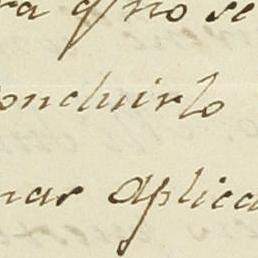 ra q no se
oncluirlo
nar aplica